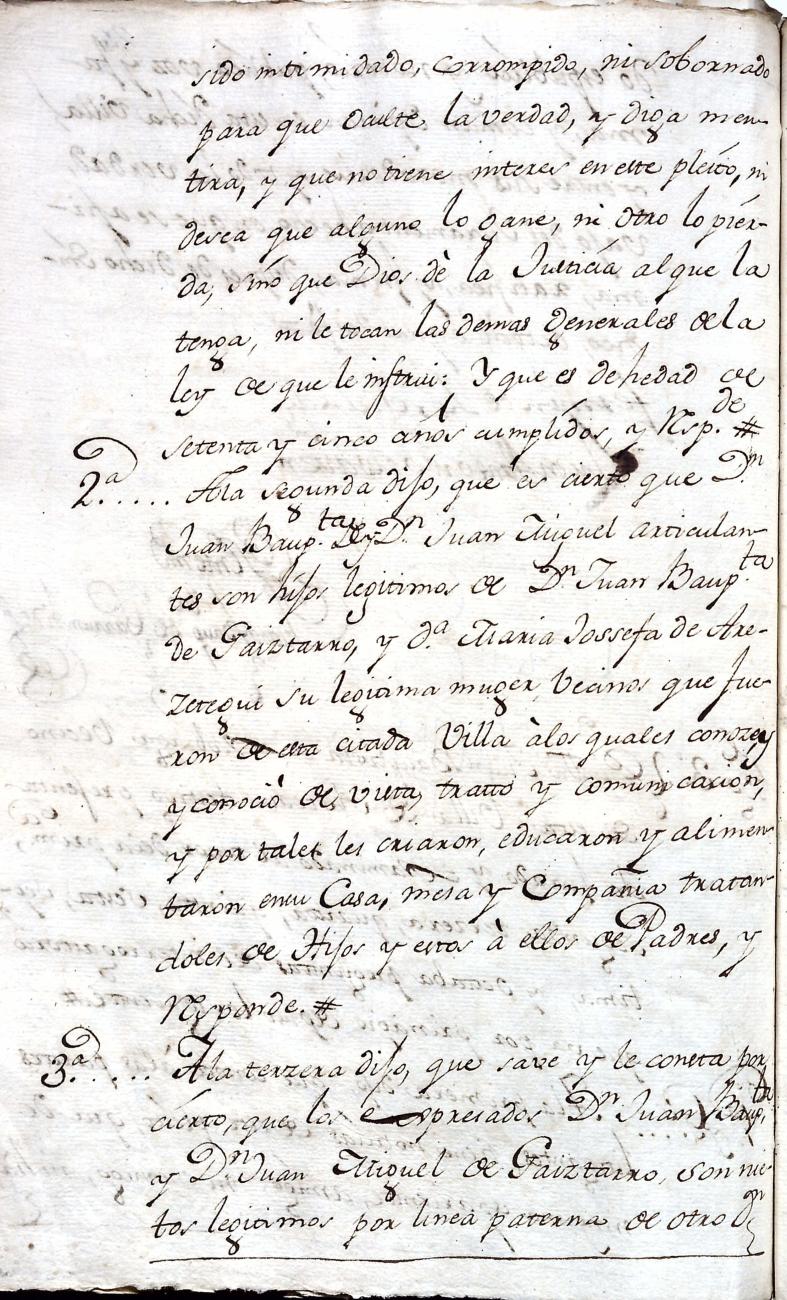 sido intimidado, corrompido, ni sobornado
para que oculte la verdad, y diga men-
tira, y que no tiene interes en este pleito, ni
desea que alguno lo gane, ni otro lo pier-
da, sino que Dios dè la Justicia al que la
tenga, ni le tocan las demas generales de la
ley de que le instrui: Y que es de hedad de
setenta y cinco años cumplidos, y Resp.de #
2.a ..... Ala segunda dijo, que es cierto que D.n
Juan Baup.ta y D.n Juan Miguel articulan-
tes son hijos legitimos de D.n Juan Baup.ta
de Gaiztarro, y d.a Maria Jossefa de Are-
zetegui su legitima muger, Vecinos que fue-
ron de esta citada Villa àlos quales conoze,
y conociò de vista, tratto y comunicacion,
y por tales les criaron, educaron y alimen-
taron en su Casa, mesa y Compañia tratan-
doles de Hijos y estos à ellos de Padres, y
Responde. #
3.a ..... Ala terzera dijo, que save y le consta por
cierto, que los expresados D.n Juan Baup.ta
y D.n Juan Miguel de Gaiztarro, son nie-
tos legitimos por linea paterna, de otro D.n